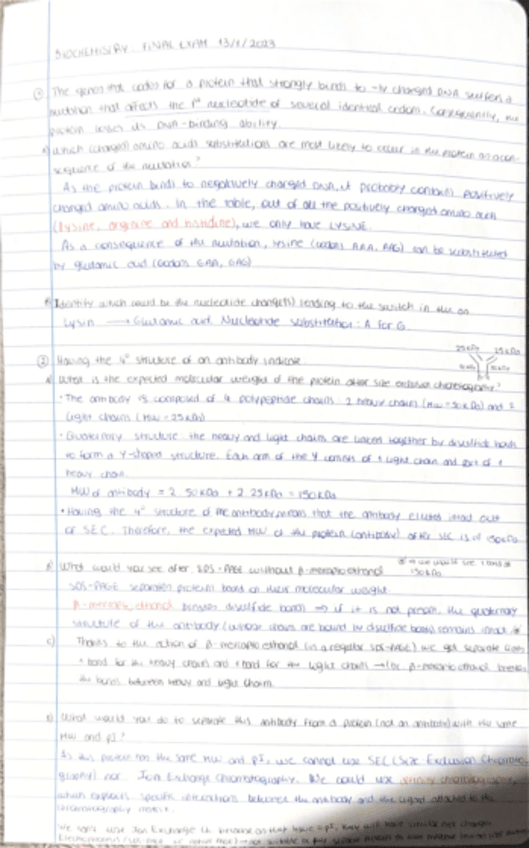 BIOCHEMISTRY FINAL EXAM 13/1/2023
① The genes that codes for a protein that strongly binds to -ly charged DNA suffers a
mutation that affects the 1st nucleotide of several identical codons. Consequently, the
protein losses its DNA-binding ability.
a) Which (charged) amino acids substitutions are most likely to occur in the protein as a con-
sequence of the mutation?
As the protein binds to negatively charged DNA, it probably contains positively
charged amino acids. In the table, out of all the positively charged amino acids
(lysine, arginine and histidine), we only have LYSINE.
As a consequence of the mutation, lysine (codons AAA, AAG) can be substituted
by glutamic acid (codons GAA, GAG)
Identify which could be the nucleotide change(s) leading to the switch in the aa
Lysin ⟶ Glutamic acid. Nucleotide substitution: A for G.
25 kDa 25 kDa
② Having the 4° structure of an antibody indicate
a) What is the expected molecular weight of the protein after size exclusion chromatography?
• The antibody is composed of 4 polypeptide chains: 2 heavy chains (MW = 50 kDa) and 2
light chains (MW = 25 kDa)
• Quaternary structure: the heavy and light chains are linked together by disulfide bonds
to form a Y-shaped structure. Each arm of the Y consists of 1 light chain and part of 1
heavy chain.
MW of antibody = 2 · 50 kDa + 2 · 25 kDa = 150 kDa
• Having the 4° structure of the antibody means that the antibody eluted intact out
of SEC. Therefore, the expected MW of the protein (antibody) after SEC is of 150 kDa
b) What would you see after SDS-PAGE without β-mercaptoethanol
we would see 1 band of
150 kDa
SDS-PAGE separates proteins based on their molecular weight
β-mercaptoethanol breaks disulfide bonds ⟹ if it is not present, the quaternary
structure of the antibody (whose chains are bound by disulfide bonds) remains intact
c) Thanks to the action of β-mercaptoethanol (in a regular SDS-PAGE) we get separate
1 band for the heavy chains and 1 band for the light chains ⟶ β-mercaptoethanol breaks
the bonds between heavy and light chains.
What would you do to separate this antibody from a protein (not an antibody) with the same
MW and pI?
As this protein has the same MW and pI, we cannot use SEC (Size Exclusion Chromato-
graphy) nor Ion Exchange Chromatography. We could use affinity chromatography
which exploits specific interactions between the antibody and the ligand attached to the
chromatography matrix.
We can't use Ion Exchange